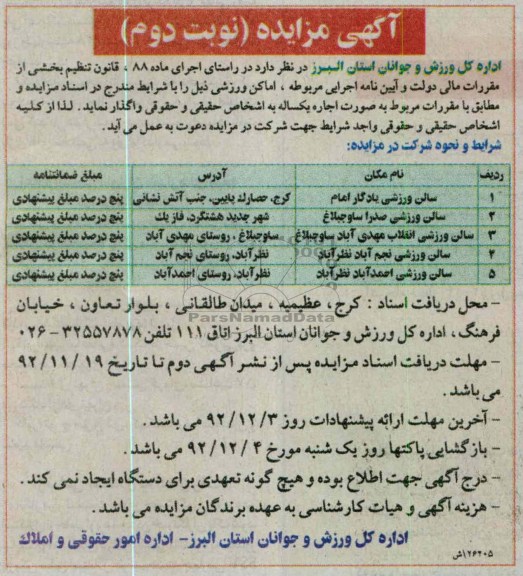 آگهی مزایده (نوبت دوم)
اداره کل ورزش و جوانان استان البرز در نظر دارد در راستای اجرای ماده ۸۸ ، قانون تنظیم بخشی از
مقررات مالی دولت و آیین نامه اجرایی مربوطه ، اماکن ورزشی ذیل را با شرایط مندرج در اسناد مزایده و
مطابق با مقررات مربوط به صورت اجاره یکساله به اشخاص حقیقی و حقوقی واگذار نماید . لذا از کلیه
اشخاص حقیقی و حقوقی واجد شرایط جهت شرکت در مزایده دعوت به عمل می آید .
شرایط و نحوه شرکت در مزایده:
ردیف نام مکان آدرس مبلغ ضمانتنامه
۱ سالن ورزشی یادگار امام کرج، حصارک پایین، جنب آتش نشانی پنج درصد مبلغ پیشنهادی
۲ سالن ورزشی صدرا ساوجبلاغ شهر جدید هشتگرد، فاز یک پنج درصد مبلغ پیشنهادی
۳ سالن ورزشی انقلاب مهدی آباد ساوجبلاغ ساوجبلاغ ، روستای مهدی آباد پنج درصد مبلغ پیشنهادی
۴ سالن ورزشی نجم آباد نظرآباد نظرآباد، روستای نجم آباد پنج درصد مبلغ پیشنهادی
۵ سالن ورزشی احمدآباد نظرآباد نظرآباد، روستای احمدآباد پنج درصد مبلغ پیشنهادی
– محل دریافت اسناد : کرج ، عظیمیه ، میدان طالقانی ، بلوار تعاون ، خیابان
فرهنگ ، اداره کل ورزش و جوانان استان البرز اتاق ۱۱۱ تلفن ۳۲۵۵۷۸۷۸ – ۰۲۶
– مهلت دریافت اسناد مزایده پس از نشر آگهی دوم تا تاریخ ۹۲/۱۱/۱۹ می
باشد .
– آخرین مهلت ارائه پیشنهادات روز ۹۲/۱۲/۳ می باشد .
– بازگشایی پاکتها روز یک شنبه مورخ ۹۲/۱۲/۴ می باشد .
– درج آگهی جهت اطلاع بوده و هیچ گونه تعهدی برای دستگاه ایجاد نمی کند .
– هزینه آگهی و هیات کارشناسی به عهده برندگان مزایده می باشد .
اداره کل ورزش و جوانان استان البرز- اداره امور حقوقی و املاک
۱۲۶۲۰۵/ش
ParsNamadData